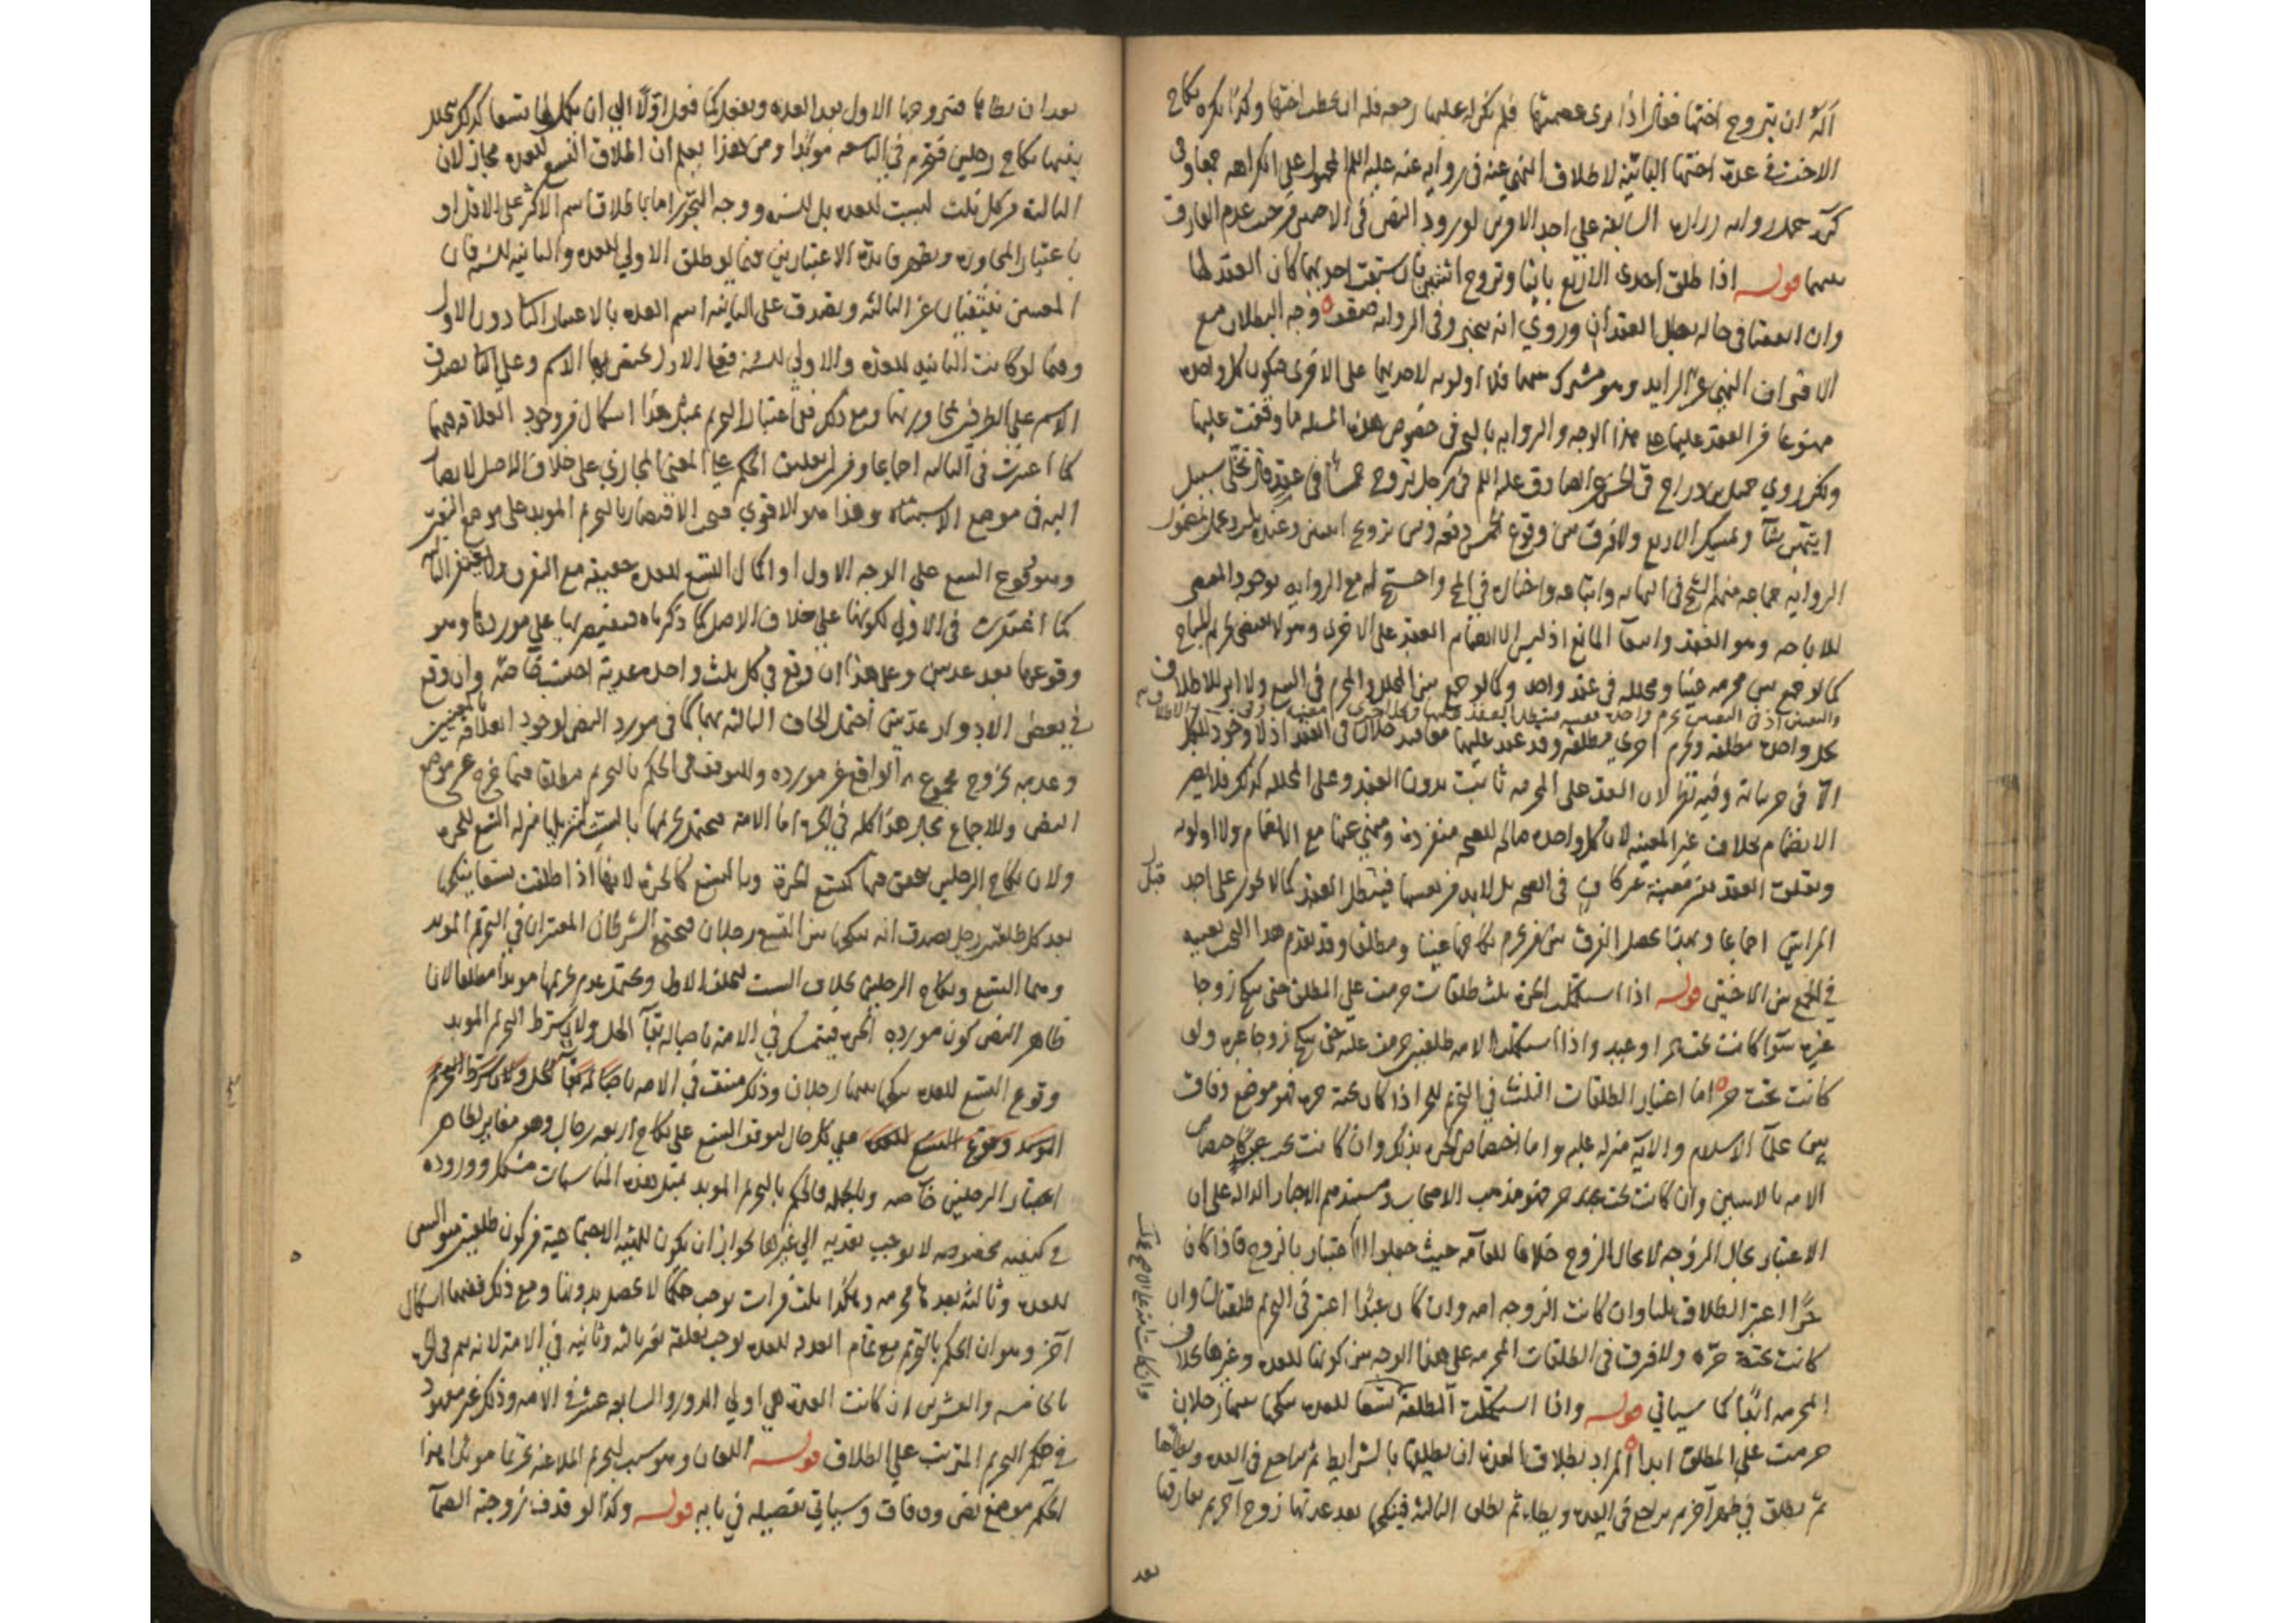 اكره ان يتزوج اختها فقال اذا برى عصمتها فلم يكن له عليها رجعه فله ان يخطب اختها وكذا يكره نكاح
الاخت في عدة اختها البائنة لاطلاق النهي عنه في رواية عنه عليه السلام المحمول على الكراهه جمعا وفي
السابقه على احد الامرين لورود النص في الاختين من حيث عدم الفارق
بينهما قوله اذا طلق احدى الاربع بائنا وتزوج اثنتين فان سبقت احديهما كان العقد لها
وان اتفقتا في حاله بطل العقدان وروي انه يتخير وفي الروايه ضعف وجه البطلان مع
الاقتران النهي عن الزايد وهو مشترك بينهما فلا اولويه لاحديهما على الاخرى فيكون كل واحده
ممنوعا من العقد عليها على هذا الوجه والروايه بالتخيير في خصوص هذه المسئله ما وقفت عليها
ولكن روي جميل بن دراج في الحسن عن الصادق عليه السلم في رجل تزوج خمسا في عقد قال يخلي سبيل
ايتهن شاء ويمسك الاربع ولا فرق بين وقوع الخمس دفعه وبين تزويج اثنتين وعنده ثلث وعمل بمضمون
الروايه جماعه منهم الشيخ في النهايه واتباعه واختاره في المخ واحتج له مع الروايه بوجود المقتضي
للاباحه وهو العقد وانتفا المانع اذ ليس الا انضمام العقد على الاخرى وهو لا يقتضي تحريم المباح
كما لو جمع بين محرمه عينا ومحلله في عقد واحد وكما لو جمع بين المحلل والمحرم في البيع ولا اثر للاطلاق
بحل واحده مطلقه وتحريم اخرى مطلقه وقد عقد عليهما معا فيدخلان في العقد اذ لا وجود للكل
الا في جزياته وفيه نظر لان العقد على المحرمه ثابت بدون العقد وعلى المحلله كذلك فلا يضر
الانضمام بخلاف غير المعينه لان كل واحده صالحه للصحه منفرده ومنهي عنها مع الانضمام ولا اولويه
وتعلق العقد بغير معينه غير كاف في الصحه بل لا بد من تعيينها فيبطل العقد كما لا يجوز على احد
قبل
المراتين اجماعا وبهذا يحصل الفرق بين من يحرم نكاحها عينا ومطلقا وقد تقدم هذا البحث بعينه
في الجمع بين الاختين قوله اذا استكملت الحره ثلث طلقات حرمت على المطلق حتى تنكح زوجا
غيره سوا كانت تحت حر او عبد واذا استكملت الامه طلقتين حرمت عليه حتى تنكح زوجا غيره ولو
كانت تحت حر اما اعتبار الطلقات الثلث في التحريم للحر اذا كان تحته حره فهو موضع وفاق
بين علماء الاسلام والايه منزله عليه واما اختصاص الحره بذلك وان كانت تحت عبد كاختصاص
الامه بالاثنين وان كانت تحت حر فهو مذهب الاصحاب ومستندهم الاخبار الداله على ان
الاعتبار بحال الزوجه لا بحال الزوج خلافا للعامه حيث جعلوا الاعتبار بالزوج فاذا كان
حرا اعتبر الطلاق ثلثا وان كانت الزوجه امه وان كان عبدا اعتبر في التحريم طلقتان وان
كانت تحته حره ولا فرق في الطلقات المحرمه على هذا الوجه بين كونها للعده وغيرها بخلاف
المحرمه ابدا كما سياتي قوله واذا استكملت المطلقه تسعا للعده ينكحها بينها رجلان
حرمت على المطلق ابدا المراد بطلاق العده ان يطلقها بالشرايط ثم يراجع في العده ويطاها
ثم يطلق في طهر آخر ثم يراجع في العده ويطا ثم يطلق الثالثه فينكحها بعد عدتها زوج آخر ثم يفارقها
بعد
بعد ان يطاها فيتزوجها الاول بعد العده ويفعل كما فعل اولا الى ان يكمل لها تسعا كذلك يتخلل
بينها نكاح رجلين فتحرم في التاسعه مؤبدا ومن هذا يعلم ان اطلاق التسع للعده مجاز لان
الثالثه من كل ثلث ليست للعده بل للسنه ووجه التجوز اما باطلاق اسم الاكثر على الاقل او
باعتبار المجاوره وتظهر فايده الاعتبارين فيما لو طلق الاولى للعده والثانيه للسنه فان
المعنيين ينتفيان عن الثالثه ويصدق على الثانيه اسم العده بالاعتبار الثاني دون الاول
وفيما لو كانت الثانيه للعده والاولى للسنه فعلى الاول يختص بها الاسم وعلى الثاني يصدق
الاسم على الطرفين لمجاورتها ومع ذلك ففي اعتبار التحريم بمثل هذا اشكال من وجود العلاقه فيهما
كما اعتبرت في الثالثه اجماعا ومن ان تعليق الحكم على المعنى المجازي على خلاف الاصل لا يصار
اليه في موضع الاشتباه وهذا هو الاقوى فيجب الاقتصار بالتحريم المؤبد على موضع اليقين
وهو وقوع التسع على الوجه الاول او اكمال التسع للعده حقيقه مع التفرق ولا يغتفر الثالثه
كما اغتفرت في الاولى لكونها على خلاف الاصل كما ذكرناه فيقتصر بها على موردها وهو
وقوعها بعد عديتين وعلى هذا ان وقع في كل ثلث واحده عديه احتسبت خاصه وان وقع
في بعض الادوار عديتين احتمل الحاق الثالثه بهما كما في مورد النص لوجود العلاقه بالمعنيين
وعدمه لخروج مجموع الواقع عن مورده وللتوقف في الحكم بالتحريم مطلقا فيما خرج عن موضع
النص والاجماع مجال هذا كله في الحره اما الامه فيحتمل تحريمها بالست لتنزيلها منزله التسع للحره
ولان نكاح الرجلين يتحقق فيها كتسع الحره وبالتسع كالحره لانها اذا طلقت تسعا ينكحها
بعد كل طلقتين رجل يصدق انه ينكحها بين التسع رجلان فيجتمع الشرطان المعتبران في التحريم المؤبد
وهما التسع ونكاح الرجلين بخلاف الست لتخلف الاول ويحتمل عدم تحريمها مؤبدا مطلقا لان
ظاهر النص كون مورده الحره فيتمسك في الامه باصاله بقاء الحل ولان شرط التحريم المؤبد
وقوع التسع للعده ينكحها بينها رجلان وذلك منتف في الامه باصاله بقاء الحل ولان شرط التحريم
المؤبد وقوع التسع للعده على كل حال لتوقف التسع على نكاح اربعه رجال وهو مغاير لظاهر
اعتبار الرجلين خاصه وبالجمله فالحكم بالتحريم المؤبد بمثل هذه المناسبات مشكل ووروده
في كيفيه مخصوصه لا يوجب تعديه الى غيرها لجواز ان يكون للهيئه الاجتماعيه من كون طلقتين متواليتين
للعده وثالثه بعدها محرمه وهكذا ثلث مرات يوجب حكما لا يحصل بدونها ومع ذلك ففيها اشكال
آخر وهو ان الحكم بالتحريم مع تمام العدد للعده يوجب تعلقه بغير ثالثه وثانيه في الامه لانه يتم في الحره
بالخامسه والعشرين ان كانت العده هي اولى الدور والسابعه عشر في الامه وذلك غير معهود
في حكم التحريم المترتب على الطلاق قوله اللعان وهو سبب لتحريم الملاعنه تحريما مؤبدا وهذا
الحكم موضع نص ووفاق وسياتي تفصيله في بابه قوله وكذا لو قذف زوجته الصماء